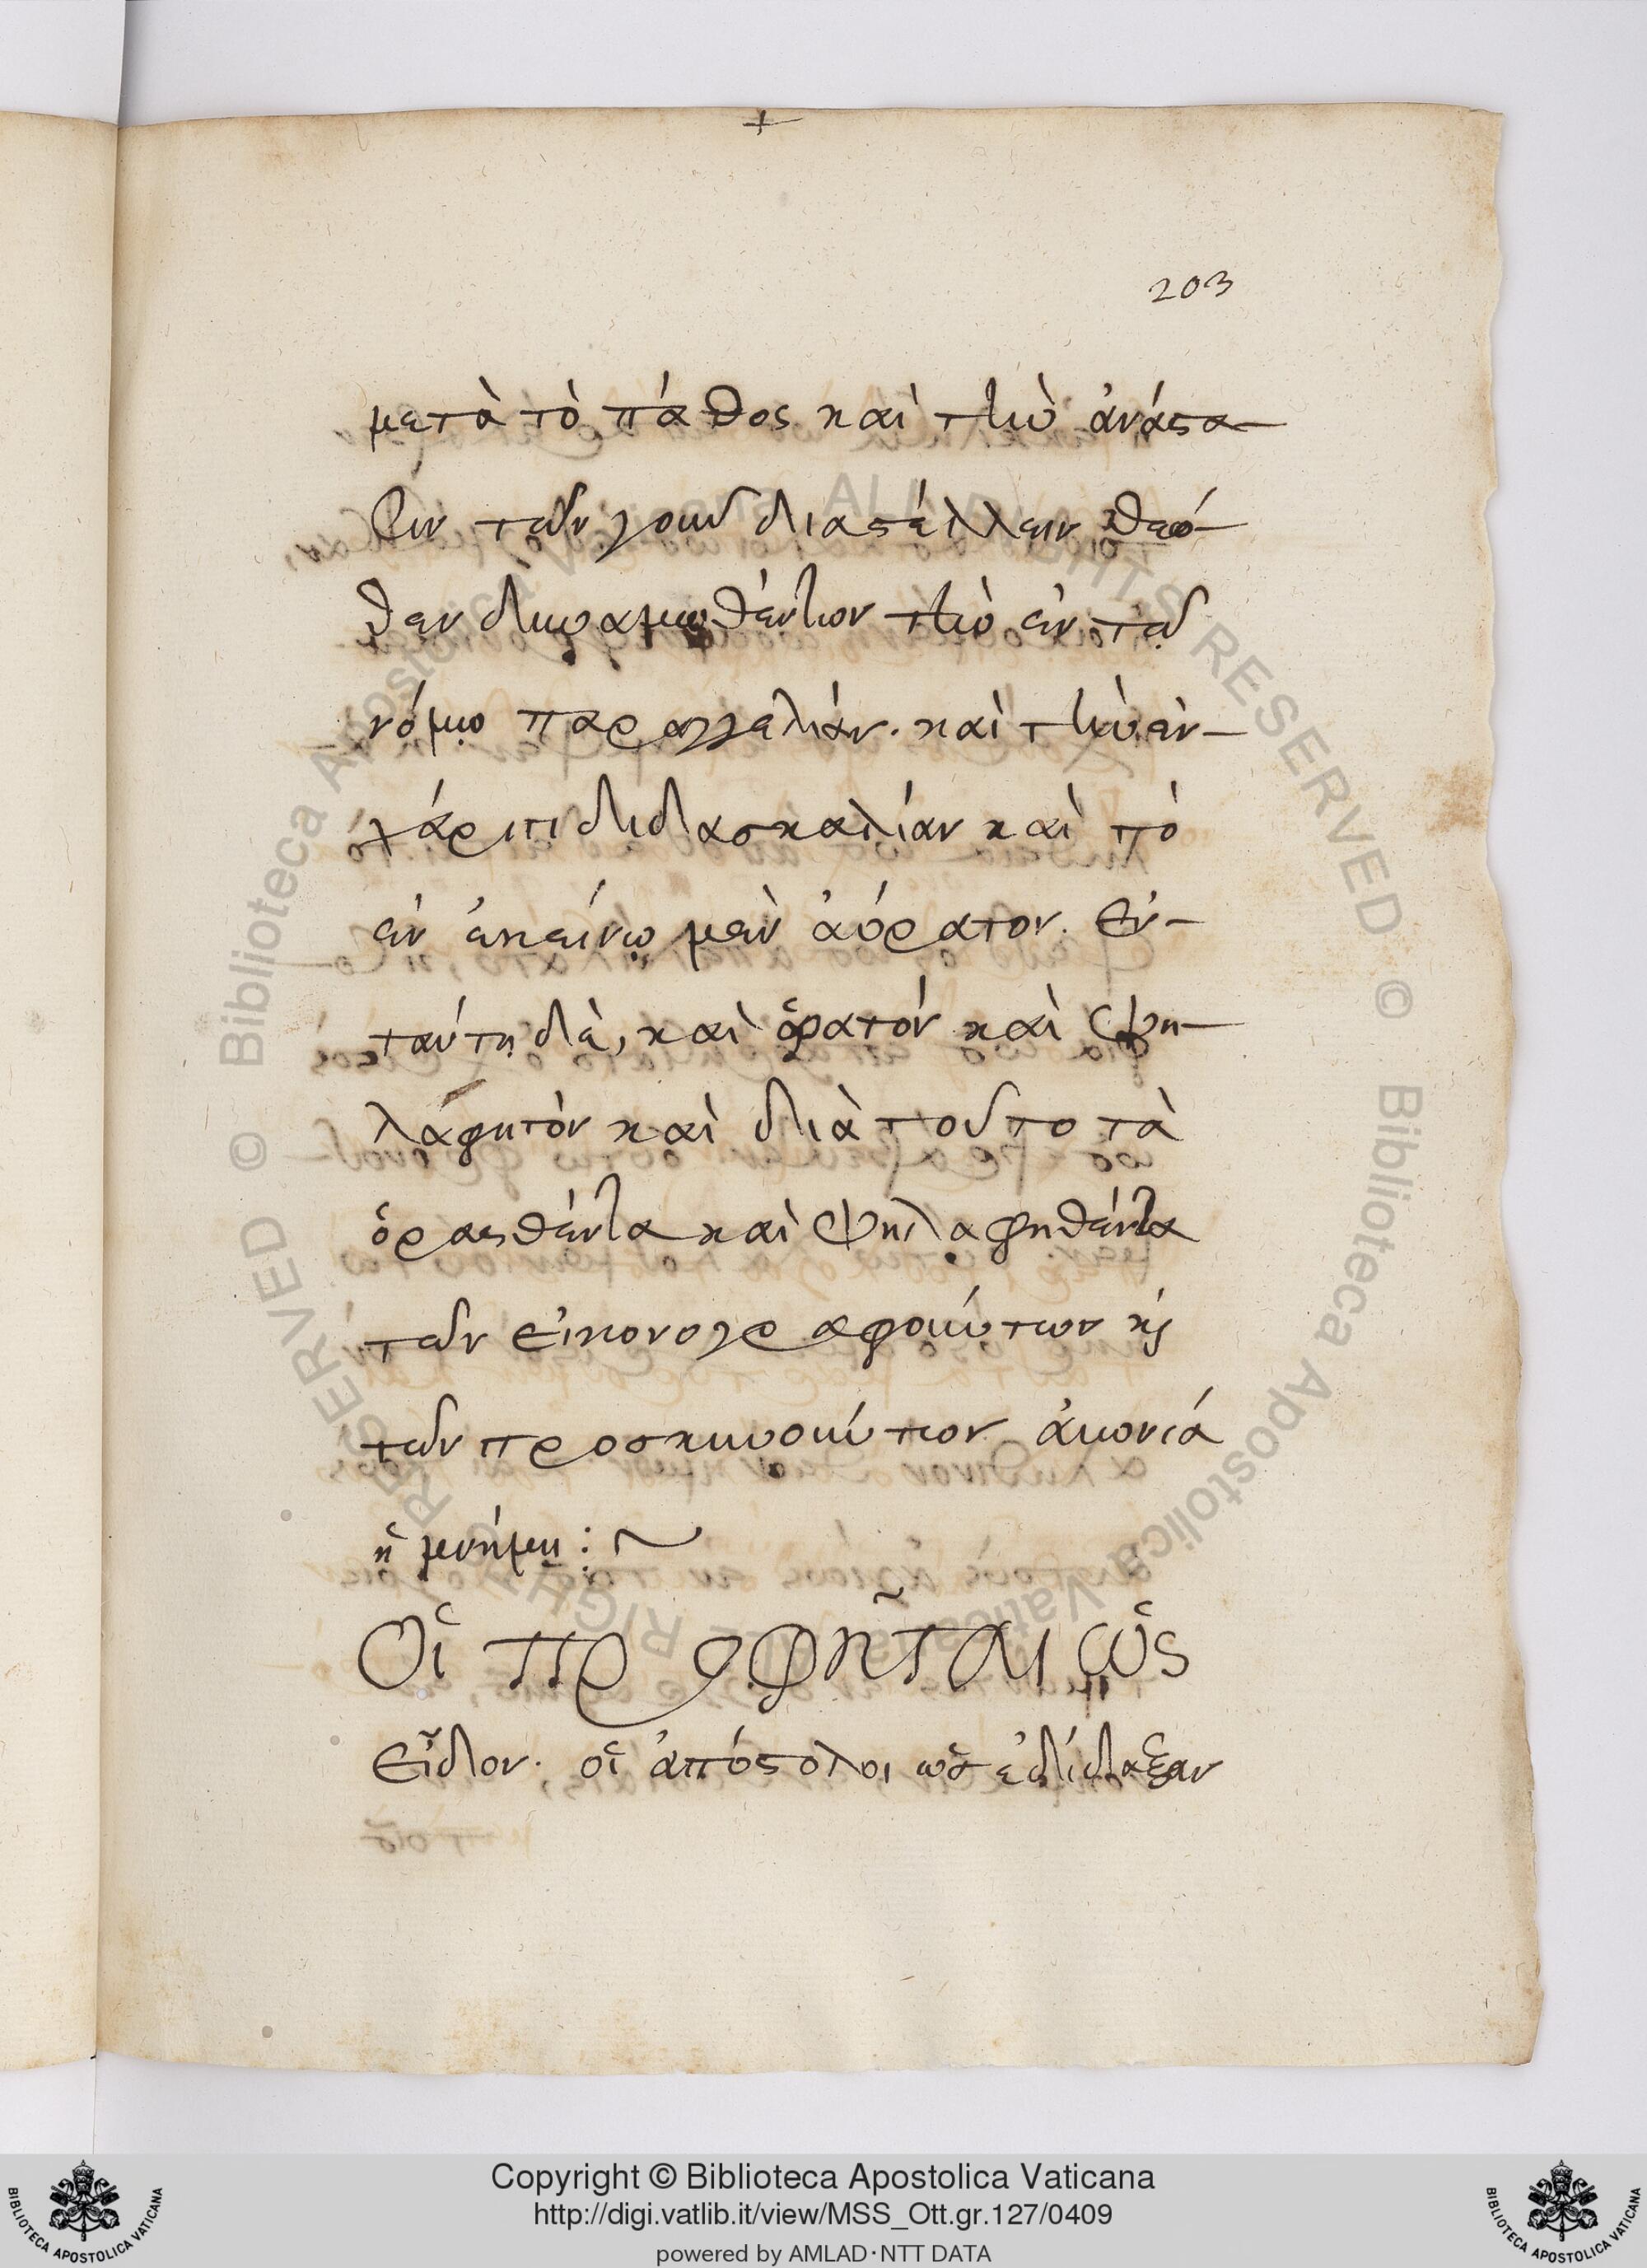 203
μετὰ τὸ πάθος καὶ τὴν ἀνάστα-
σιν τῶν γοῦν διαστέλλειν θεό-
θεν δυναμωθέντων τὴν ἐν τῷ
νόμῳ παραγγελίαν. καὶ τὴν ἐν-
χάριτι διδασκαλίαν καὶ τὸ
ἐν ἐκείνῳ μὲν ἀόρατον. ἐν-
ταύτη δὲ, καὶ ὁρατόν καὶ ψη-
λάφητὸν καὶ διὰ τοῦτο τὰ
ὁραθέντα καὶ ψηλαφηθέντα
τῶν εἰκονογραφούντων κὶ
τῶν προσκυνούντων αἰωνία
ἡ μνήμη : ~
Οἱ προφῆται ὡς
εἶδον. οἱ ἀπόστολοι ὡς ἐδίδαξαν
Copyright © Biblioteca Apostolica Vaticana
http://digi.vatlib.it/view/MSS_Ott.gr.127/0409
powered by AMLAD·NTT DATA
BIBLIOTECA APOSTOLICA VATICANA
BIBLIOTECA APOSTOLICA VATICANA